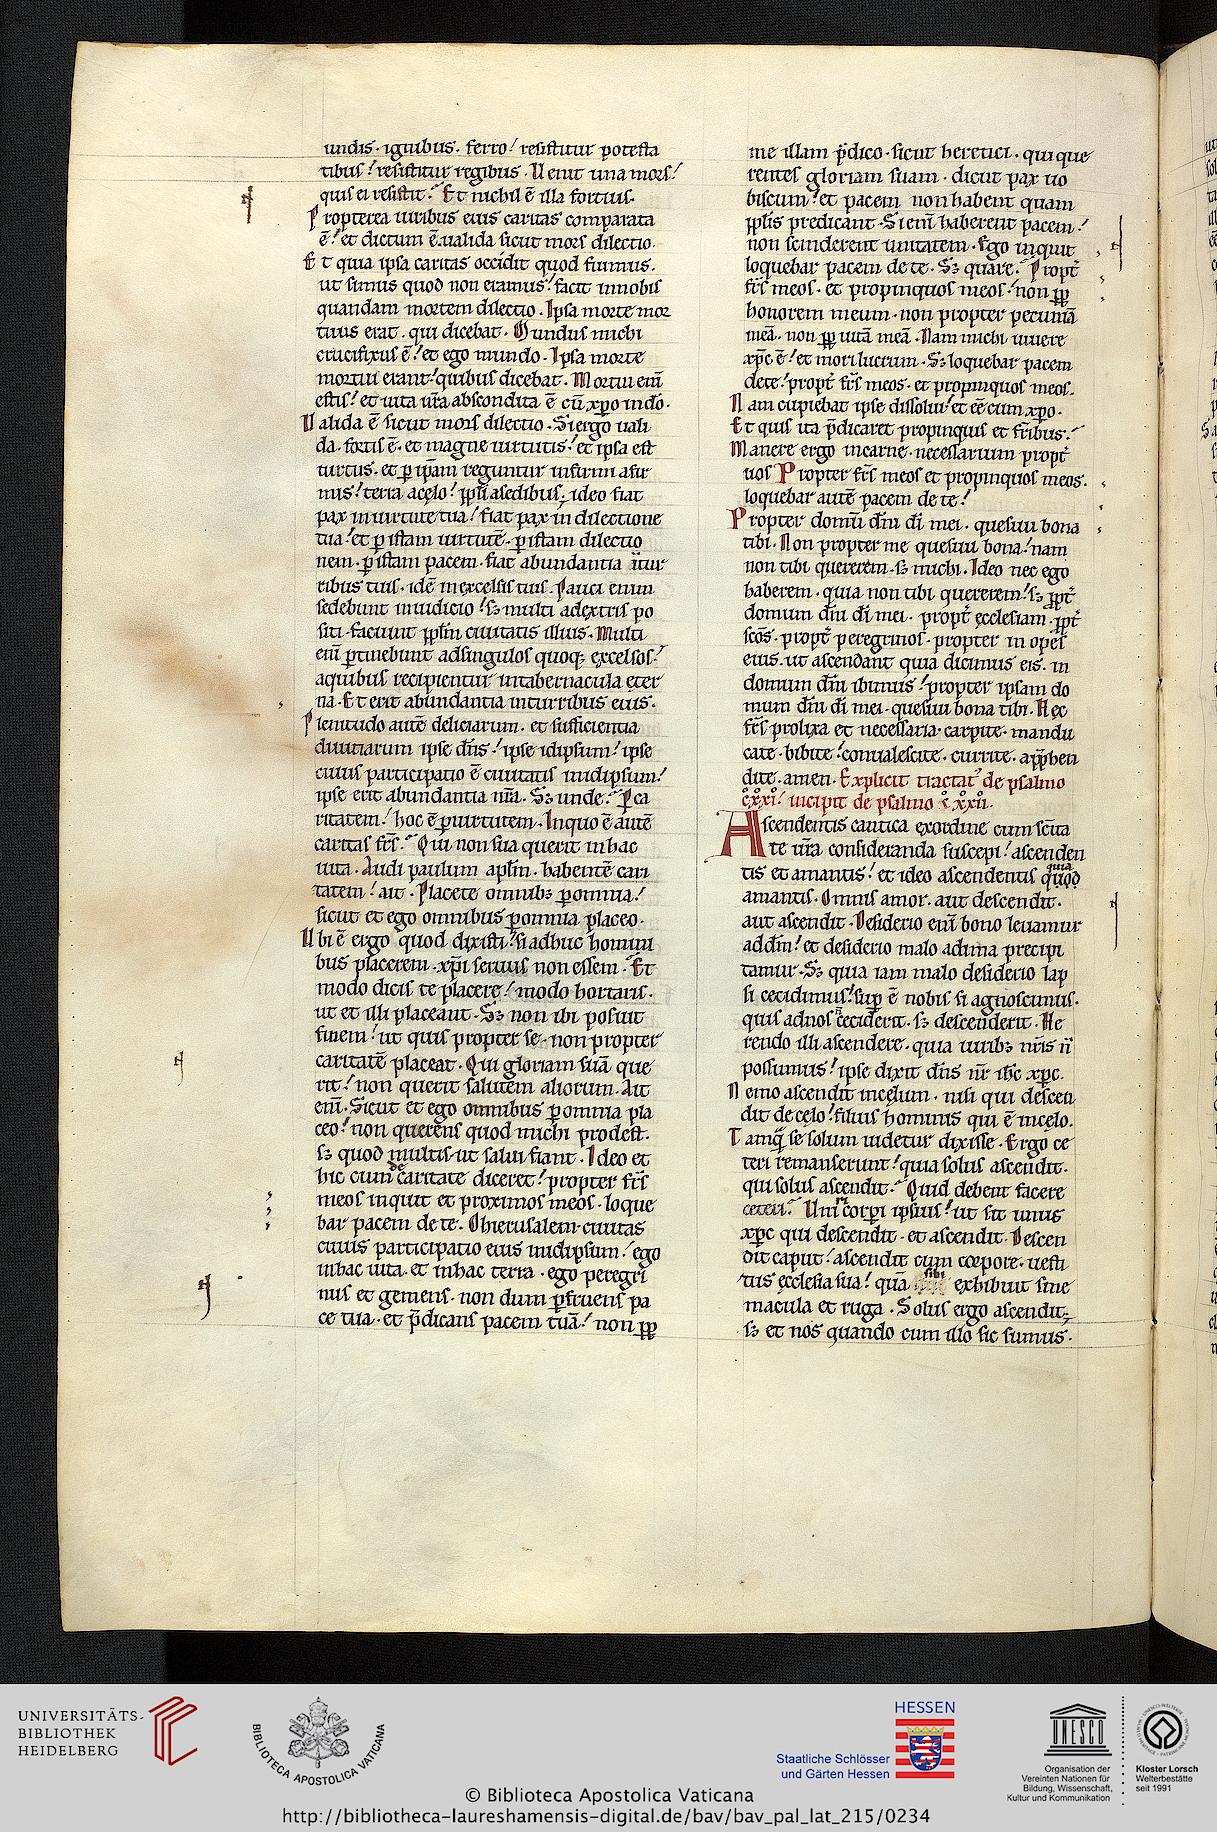 undis. ignibus. ferro! resistitur potesta
tibus! resistitur regibus. Uenit una mors!
quis ei resistit? Et nichil ē illa fortius.
Propterea uiribus eius caritas comparata
ē! et dictum ē. ualida sicut mors dilectio.
Et quia ipsa caritas occidit quod fuimus.
ut simus quod non eramus! facit innobis
quandam mortem dilectio. Ipsa morte mor
tuus erat. qui dicebat. Mundus michi
crucifixus ē! et ego mundo. Ipsa morte
mortui erant! quibus dicebat. Mortui eni͂
estis! et uita ur̄a abscondita ē cū xp̄o indō.
Ualida ē sicut mors dilectio. Si ergo uali
da. fortis ē. et magne uirtutis! et ipsa est
uirtus. et ꝑ ip̄am reguntur infirmi afir
mis! terra acęlo! pp̄li asedibus. ideo fiat
pax inuirtute tua! fiat pax in dilectione
tua! et ꝑ istam uirtutē. ꝑ istam dilectio
nem. ꝑ istam pacem. fiat abundantia i͂ tur
ribus tuis. idē inexcelsis tuis. Pauci enim
sedebunt iniudicio! sꝫ multi adextris po
siti. faciunt pp̄lm ciuitatis illius. Multi
eni͂ ꝑtinebunt adsingulos quoqꝫ excelsos!
aquibus recipientur intabernacula eter
na. Et erit abundantia inturribus eius.
Plenitudo autē deliciarum. et sufficientia
diuitiarum ipse dn̄s! ipse idipsum! ipse
cuius participatio ē ciuitatis inidipsum!
ipse erit abundantia nr̄a. Sꝫ unde? Ꝑ ca
ritatem! hoc ē ꝑ uirtutem. Inquo ē autē
caritas fr̄s? Qui non sua querit inhac
uita. Audi paulum apl̄m. habentē cari
tatem! ait. Placete omnibꝫ ꝑ omnia!
sicut et ego omnibus ꝑ omnia placeo.
Ubi ē ergo quod dixisti! si adhuc homini
bus placerem. xp̄i seruus non essem? Et
modo dicis te placere! modo hortaris.
ut et illi placeant. Sꝫ non ibi posuit
finem! ut quis propter se. non propter
caritatē placeat. Qui gloriam suā que
rit! non querit salutem aliorum. Ait
eni͂. Sicut et ego omnibus ꝑ omnia pla
ceo! non querens quod michi prodest.
sꝫ quod multis. ut salui fiant. Ideo et
hic cum de caritate diceret! propter fr̄s
meos inquit et proximos meos. loque
bar pacem de te. Ohierusalem. ciuitas
cuius participatio eius inidipsum! ego
inhac uita. et inhac terra. ego peregri
nus et gemens. non dum ꝑfruens pa
ce tua. et p̄dicans pacem tuā! non ꝓp
me illam p̄dico. sicut heretici. qui que
rentes gloriam suam. dicūt pax uo
biscum! et pacem non habent quam
pp̄lis predicant. Si eni͂ haberent pacem!
non scinderent unitatem. Ego inquit
loquebar pacem de te. Sꝫ quare? Propt̄
fr̄s meos. et propinquos meos! non ꝓp
honorem meum. non propter pecuniā
meā. non ꝓp uitā meā. Nam michi uiuere
xp̄c ē! et mori lucrum. Sꝫ loquebar pacem
dete! propt̄ fr̄s meos. et propinquos meos.
Nam cupiebat ipse dissolui! et eē cum xp̄o.
Et quis ita p̄dicaret propinquis et fr̄ibus?
Manere ergo incarne. necessarium propt̄
uos Propter fr̄s meos et propinquos meos.
loquebar autē pacem de te!
Propter domū dn̄i dī mei. quesiui bona
tibi. Non propter me quesiui bona! nam
non tibi quererem. sꝫ michi. Ideo nec ego
haberem. quia non tibi quererem! sꝫ ꝓpt̄
domum dn̄i dī mei. propt̄ ęcclesiam. ꝓpt̄
sc̄os. propt̄ peregrinos. propter in opes
eius. ut ascendant quia dicimus eis. in
domum dn̄i ibimus! propter ipsam do
mum dn̄i dī mei. quesiui bona tibi. Hec
fr̄s prolixa et necessaria. carpite. mandu
cate. bibite! conualescite. currite. app̄hen
dite. amen. Explicit tractat᷒ de psalmo
cxxi! incipit de psalmo cxxii.
Ascendentis cantica exordine cum sc̄ita
te ur̄a consideranda suscepi! ascenden
tis et amantis! et ideo ascendentis quia quod
amantis. Omnis amor. aut descendit.
aut ascendit. Desiderio eni͂ bono leuamur
ad dm̄! et desiderio malo adima precipi
tamur. Sꝫ quia iam malo desiderio lap
si cecidimus! suꝑ ē nobis si agnoscimus.
quis adnos n̄ ceciderit. sꝫ descenderit. He
rendo illi ascendere. quia uiribꝫ nr̄is n̄
possumus! ipse dixit dn̄s nr̄ ih̄c xp̄c.
Nemo ascendit incęlum. nisi qui descen
dit decęlo! filius hominis qui ē incelo.
Tamq̄ se solum uidetur dixisse. Ergo ce
teri remanserunt! quia solus ascendit.
qui solus ascendit? Quid debent facere
ceteri? Uniri corꝑi ipsius! ut sit unus
xp̄c qui descendit. et ascendit. Descen
dit caput! ascendit cum corpore. uesti
tus ęcclesia sua! quā sibi exhibuit sine
macula et ruga. Solus ergo ascendit;
sꝫ et nos quando cum illo sic sumus.
UNIVERSITÄTS-
BIBLIOTHEK
HEIDELBERG
BIBLIOTECA APOSTOLICA VATICANA
HESSEN
Staatliche Schlösser
und Gärten Hessen
UNESCO
Organisation der
Vereinten Nationen für
Bildung, Wissenschaft,
Kultur und Kommunikation
Kloster Lorsch
Welterbestätte
seit 1991
© Biblioteca Apostolica Vaticana
http://bibliotheca-laureshamensis-digital.de/bav/bav_pal_lat_215/0234